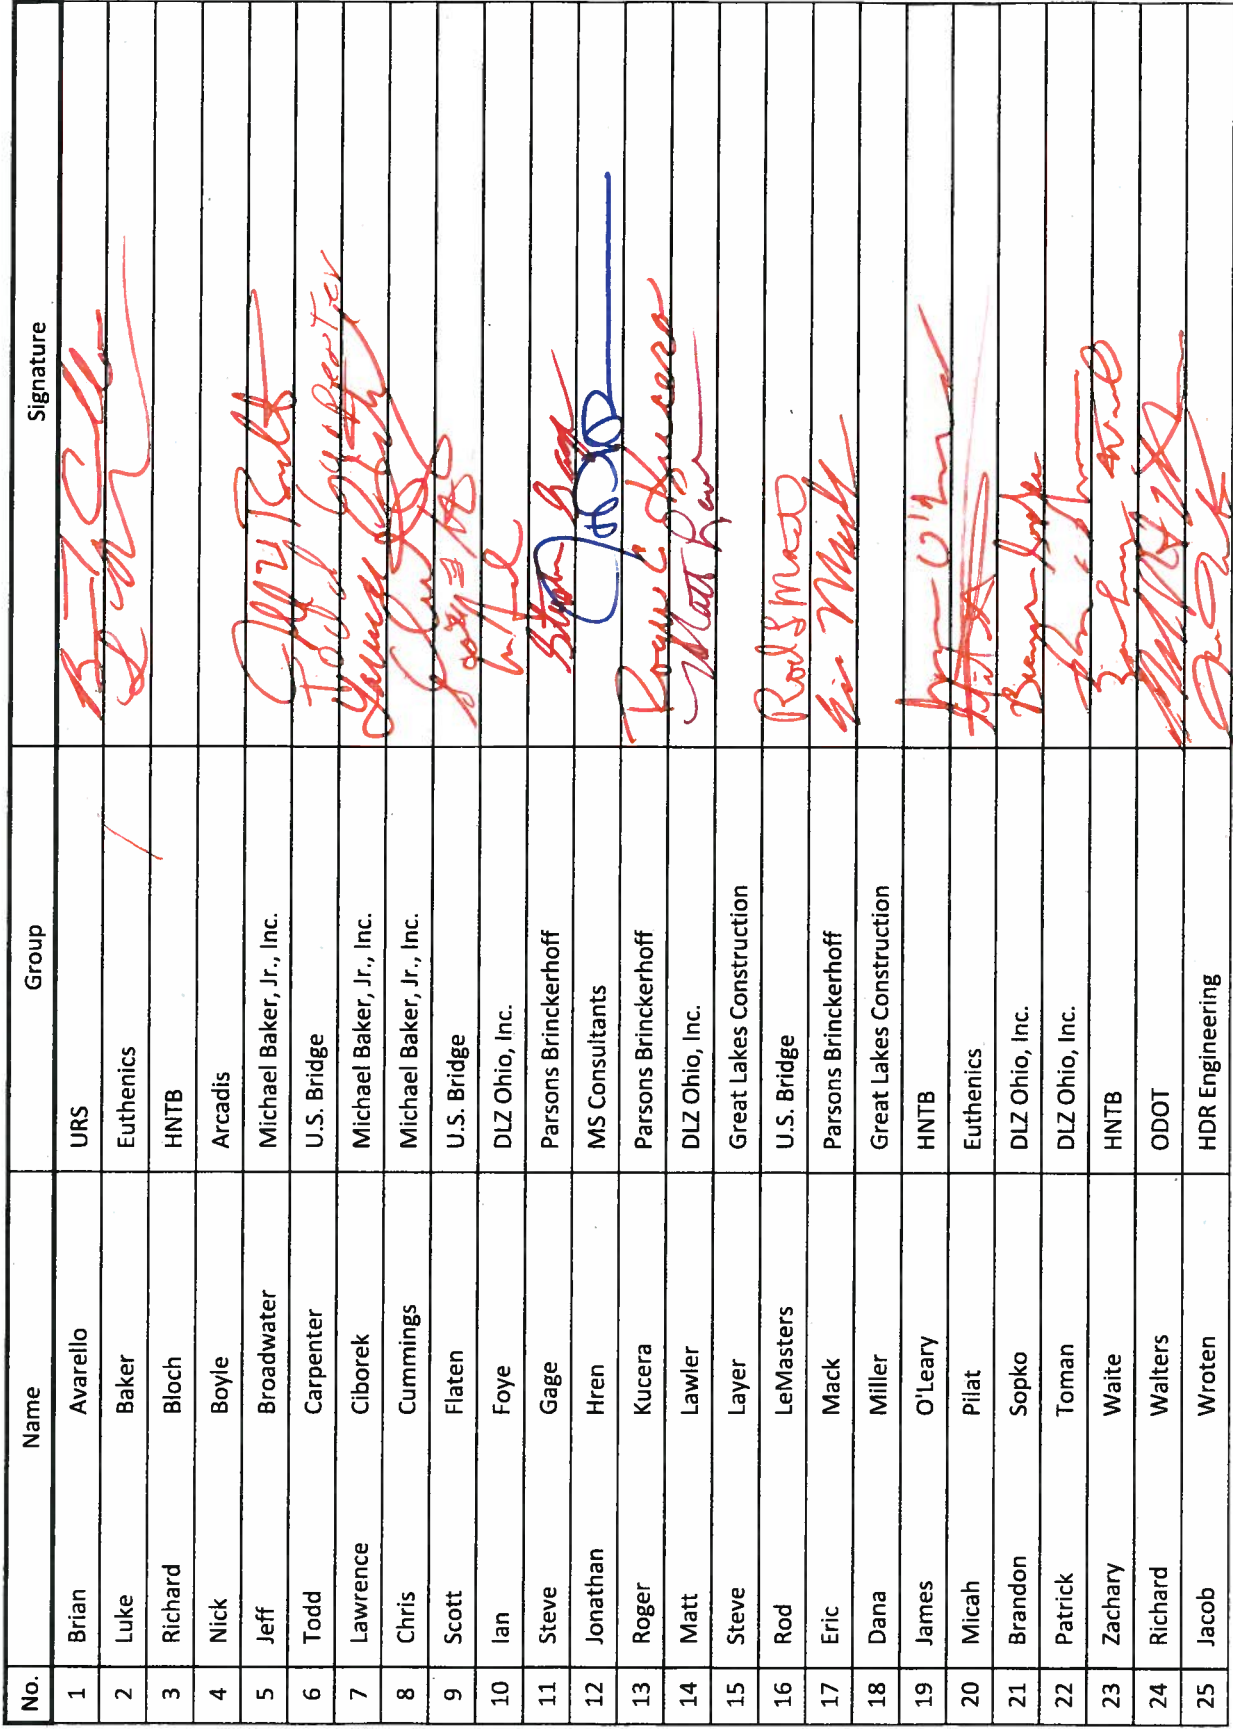 No. Name Group Signature
1 Brian Avarello URS
2 Luke Baker Euthenics
3 Richard Bloch HNTB
4 Nick Boyle Arcadis
5 Jeff Broadwater Michael Baker, Jr., Inc.
6 Todd Carpenter U.S. Bridge Todd Carpenter
7 Lawrence Ciborek Michael Baker, Jr., Inc.
8 Chris Cummings Michael Baker, Jr., Inc.
9 Scott Flaten U.S. Bridge
10 Ian Foye DLZ Ohio, Inc.
11 Steve Gage Parsons Brinckerhoff Stephen Gage
12 Jonathan Hren MS Consultants
13 Roger Kucera Parsons Brinckerhoff Roger C Kucera
14 Matt Lawler DLZ Ohio, Inc. Matt
15 Steve Layer Great Lakes Construction
16 Rod LeMasters U.S. Bridge Rod
17 Eric Mack Parsons Brinckerhoff Eric Mack
18 Dana Miller Great Lakes Construction
19 James O'Leary HNTB
20 Micah Pilat Euthenics
21 Brandon Sopko DLZ Ohio, Inc. Brandon Sopko
22 Patrick Toman DLZ Ohio, Inc.
23 Zachary Waite HNTB
24 Richard Walters ODOT
25 Jacob Wroten HDR Engineering